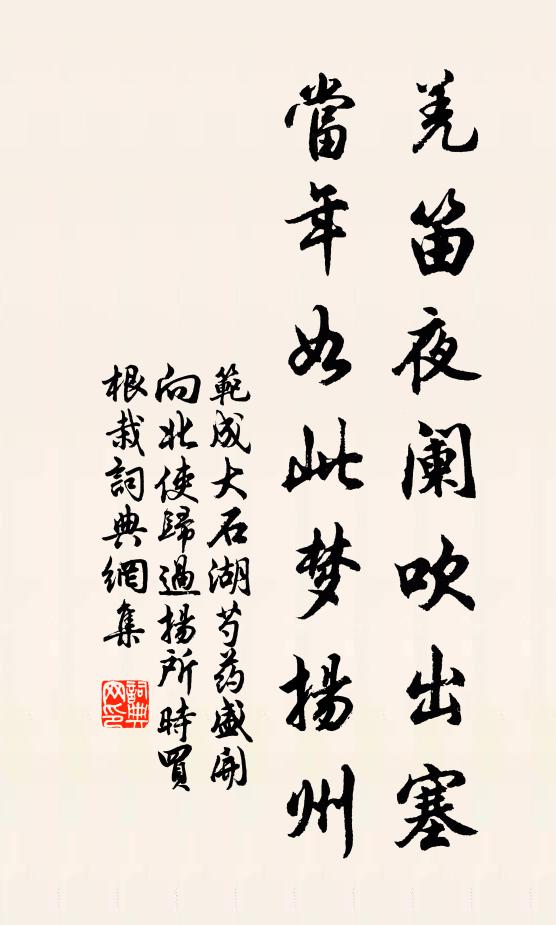 羌笛夜阑吹出塞
當年如此梦揚州
範成大石湖芍药盛開
向北使歸過揚所時買
根栽詞典網集
詞典網印